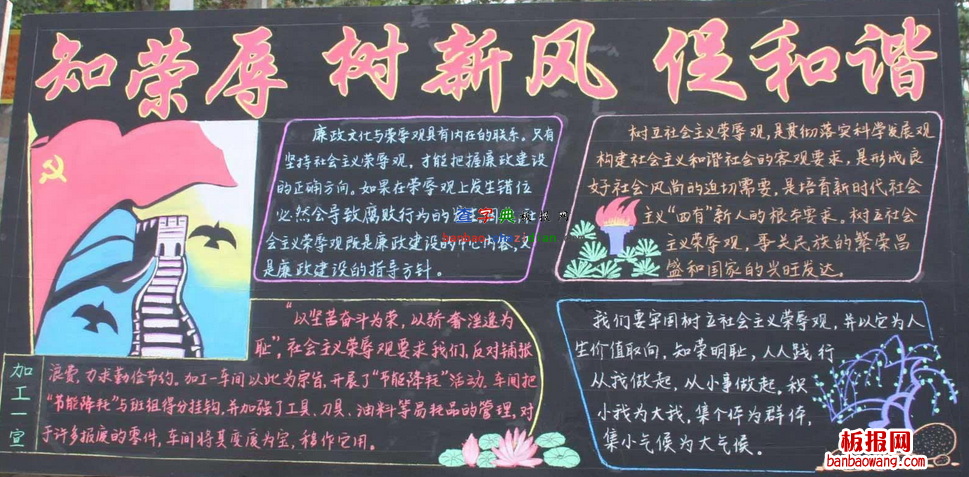 知荣辱 树新风 促和谐
廉政文化与荣辱观具有内在的联系。只有
坚持社会主义荣辱观，才能把握廉政建设
的正确方向。如果在荣辱观上发生错位
必然会导致腐败行为的
会主义荣辱观既是廉政建设的 内容，又
是廉政建设的指导方针。
查字典
banbao. zi .com
树立社会主义荣辱观，是贯彻落实科学发展观
构建社会主义和谐社会的客观要求，是形成良
好社会风尚的迫切需要，是培育新时代社会
主义“四有”新人的根本要求。树立社会
主义荣辱观，事关民族的繁荣昌
盛和国家的兴旺发达。
“以坚苦奋斗为荣，以骄奢淫逸为
耻”，社会主义荣辱观要求我们，反对铺张
浪费，力求勤俭节约。加工一车间以此为宗旨，开展了“节能降耗”活动，车间把
“节能降耗”与班组得分挂钩，并加强了工具、刀具、油料等易耗品的管理，对
于许多报废的零件，车间将其变废为宝，移作它用。
加工一宣
我们要牢固树立社会主义荣辱观，并以它为人
生价值取向，知荣明耻，人人践行
从我做起，从小事做起。积
小我为大我，集个体为群体，
集小气候为大气候。
板报网
banbaowang.com